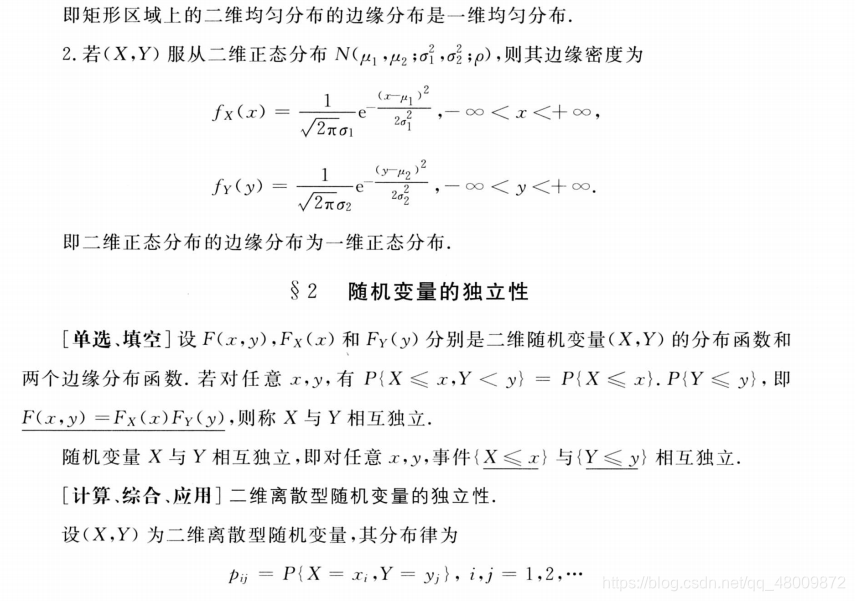 即矩形区域上的二维均匀分布的边缘分布是一维均匀分布.
2. 若(X,Y) 服从二维正态分布 N(μ₁,μ₂;σ₁²,σ₂²;ρ),则其边缘密度为
f_X(x) = \frac{1}{\sqrt{2π}σ₁}e^{-\frac{(x-μ₁)²}{2σ₁²}},-∞ < x <+∞,
f_Y(y) = \frac{1}{\sqrt{2π}σ₂}e^{-\frac{(y-μ₂)²}{2σ₂²}},-∞ < y <+∞.
即二维正态分布的边缘分布为一维正态分布.
§2 随机变量的独立性
[单选、填空] 设 F(x,y),F_X(x) 和 F_Y(y) 分别是二维随机变量(X,Y) 的分布函数和
两个边缘分布函数. 若对任意 x,y,有 P{X ⩽ x,Y < y} = P{X ⩽ x}. P{Y ⩽ y},即
F(x,y) = F_X(x)F_Y(y),则称 X 与 Y 相互独立.
随机变量 X 与 Y 相互独立,即对任意 x,y,事件{X ⩽ x} 与{Y ⩽ y} 相互独立.
[计算、综合、应用] 二维离散型随机变量的独立性.
设(X,Y) 为二维离散型随机变量,其分布律为
p_{ij} = P{X = x_i,Y = y_j}, i,j = 1,2,⋯
https://blog.csdn.net/qq_48009872